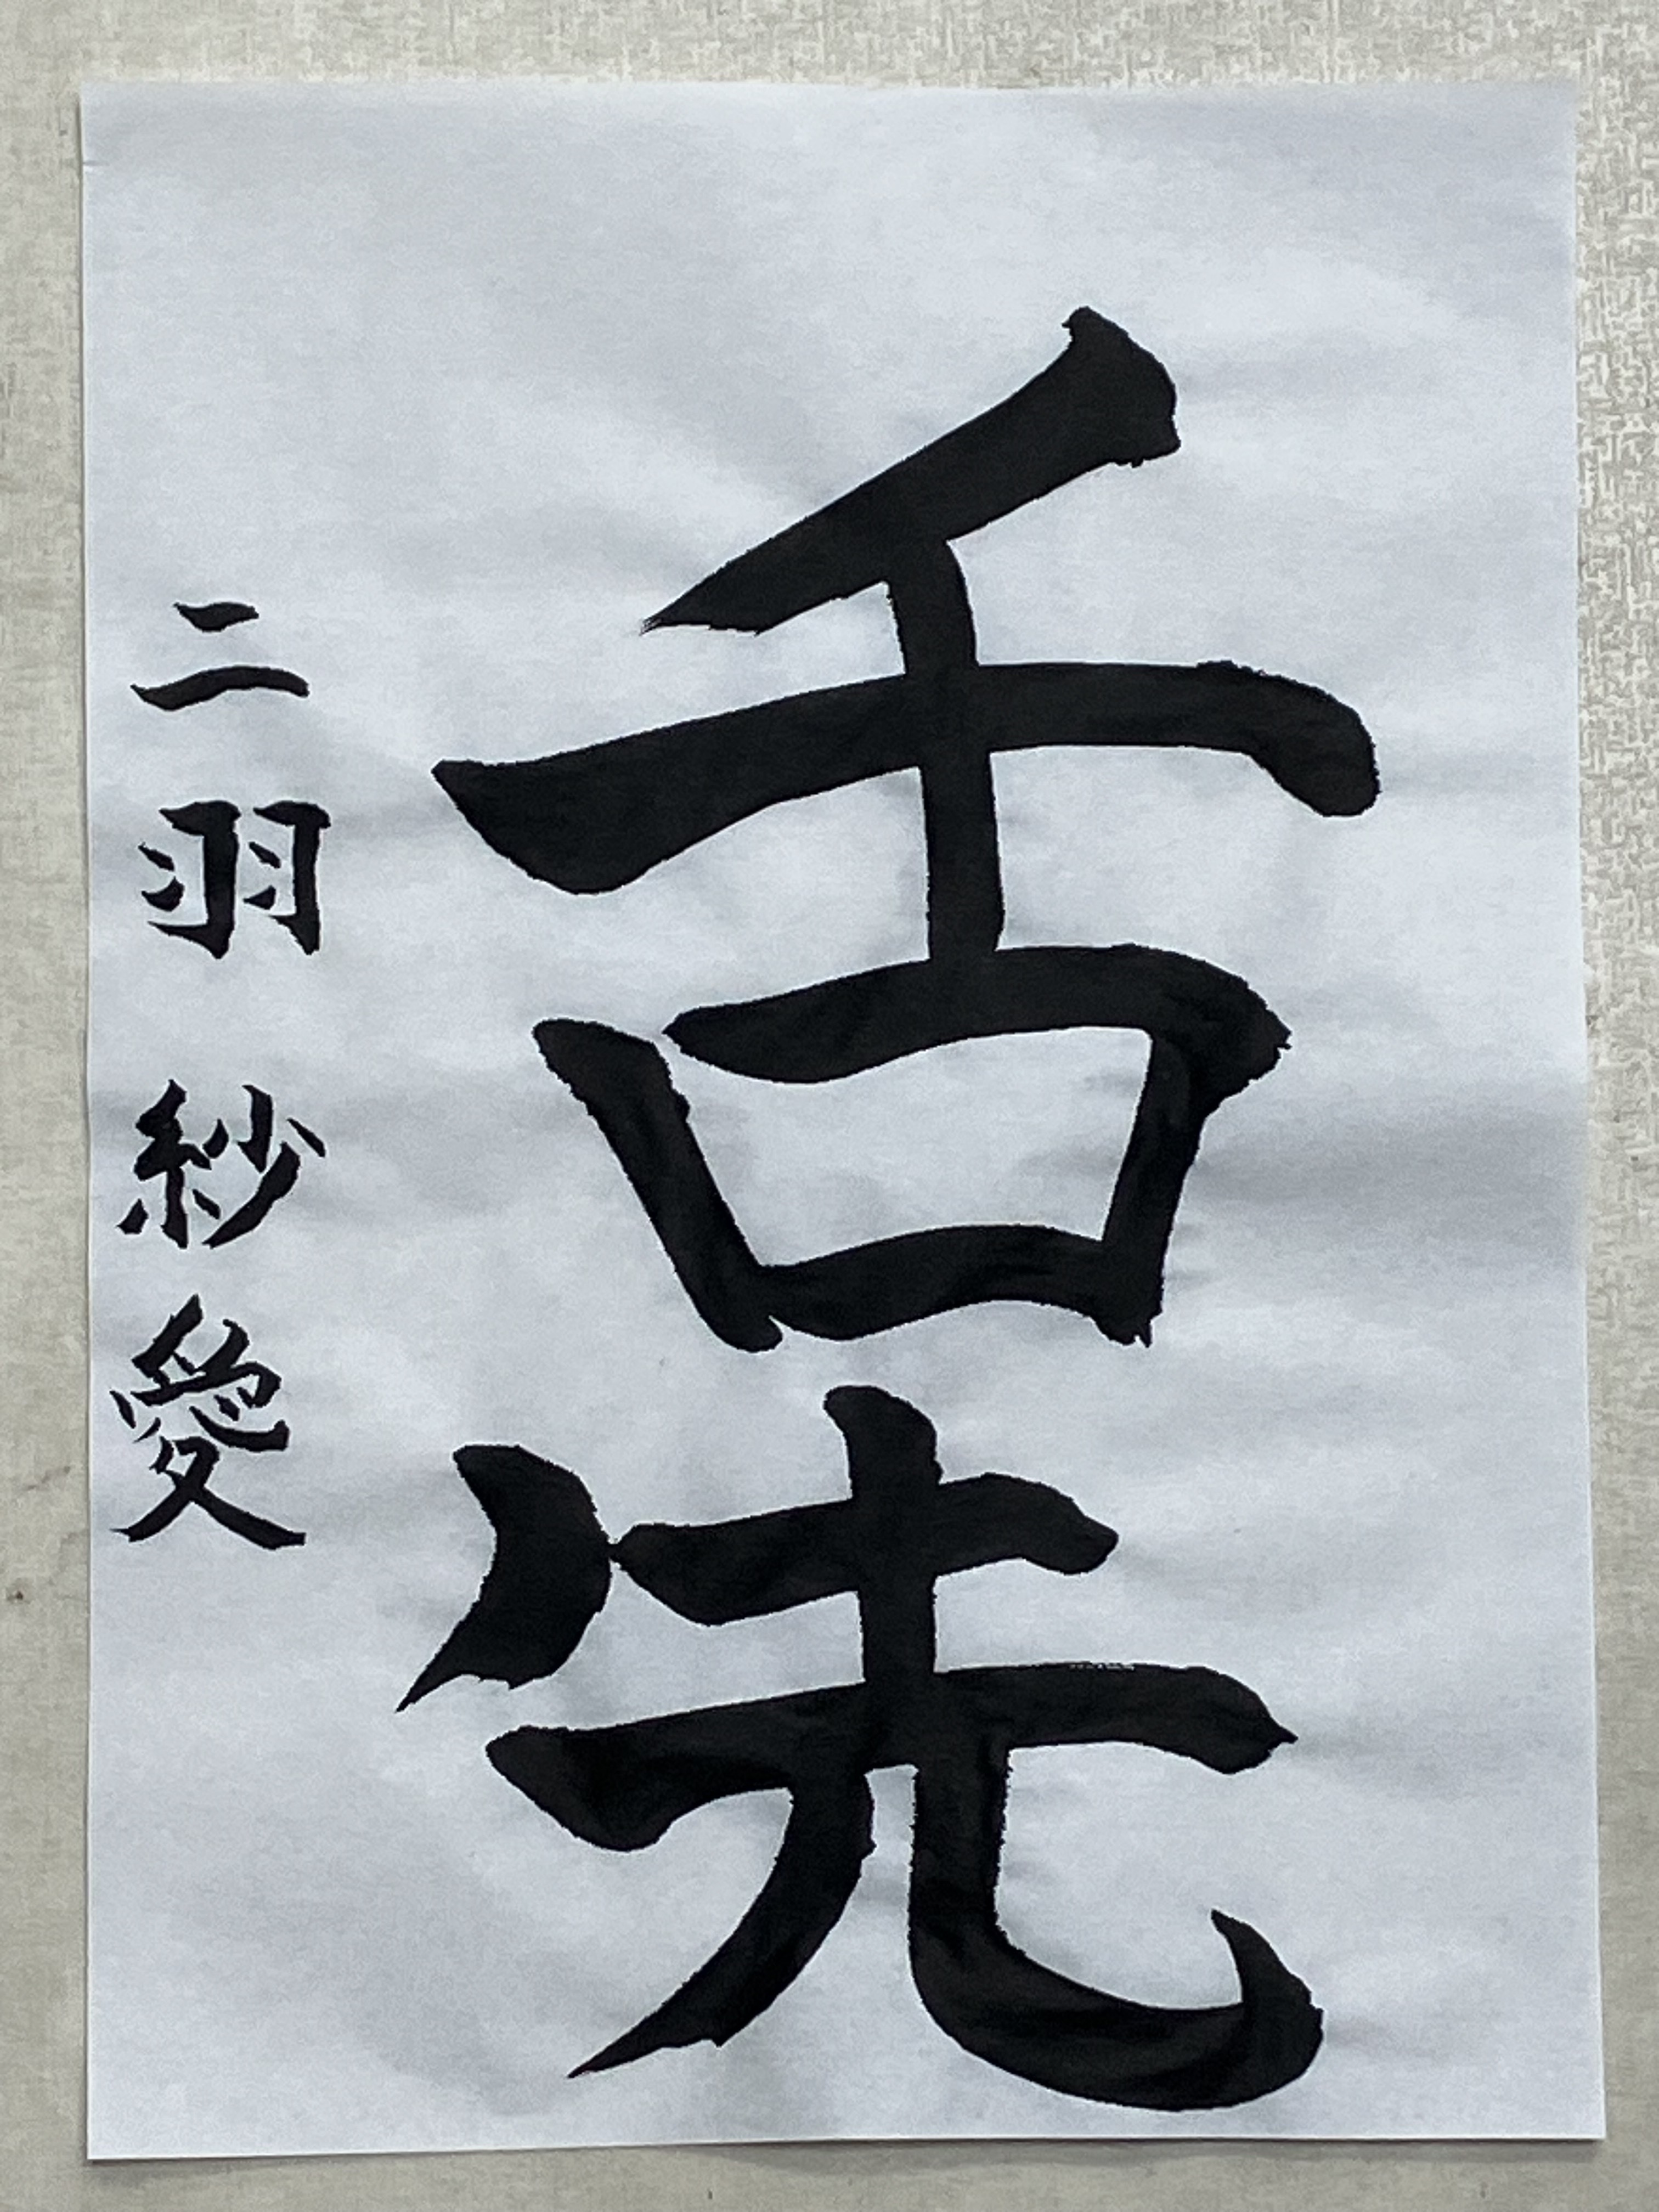 舌先
二羽紗愛